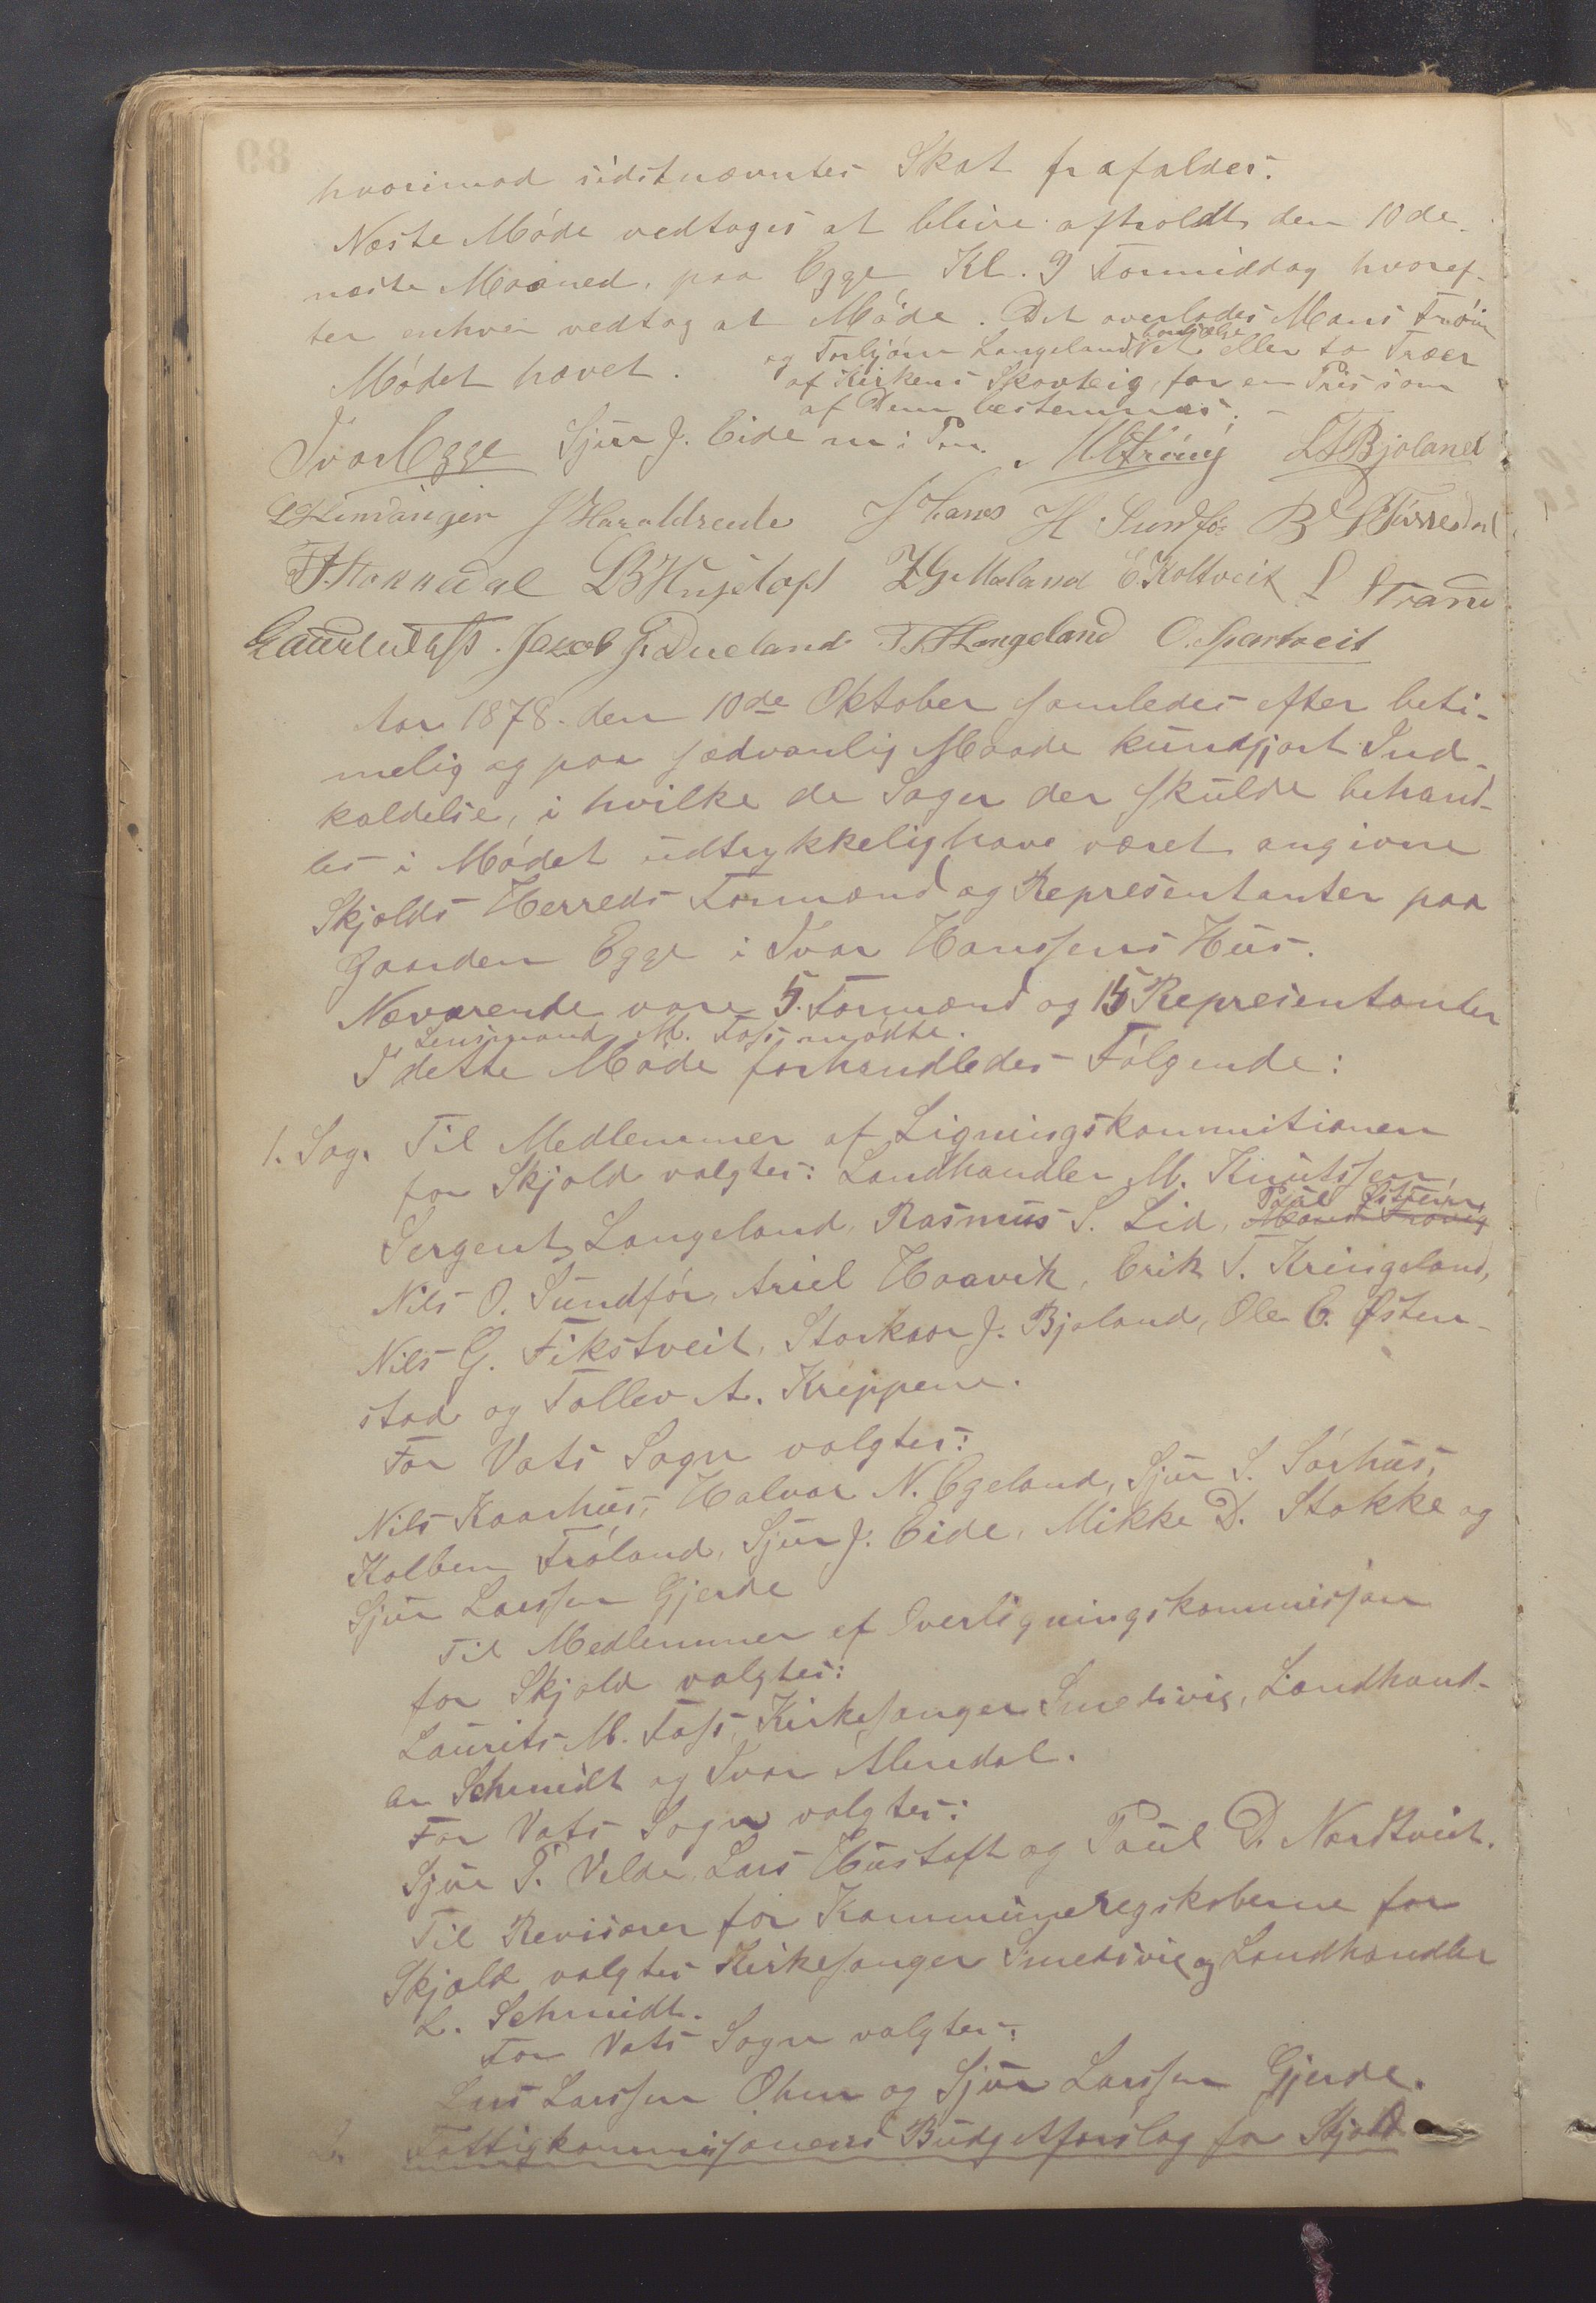 hvorimod sidstnævntes Skat frafaldes.
Næste Møde vedtoges at blive afholdt den 10de
næste Maaned, paa Egge Kl. 9 Formiddag hvoref-
ter enhver vedtog at Møde. Det overlodes Mons Frøvig
og Torbjørn Langeland bortsælge et eller to Træer
Mødet hævet. af Kirkens Skovteig, for en Pris som
af Dem bestemmes.
Ivar Egge Sjur J. Eide m. i Pen. M Frøvig L T Bjoland
J Haraldseide J Hans H. Sundfør
T. Stokkedal L B Hustoft Z G Mæland E. Koltveit L Strand
Jacob J. Dueland T. T. Langeland O. Spartveit
Aar 1878 den 10de Oktober samledes efter beti-
melig og paa sædvanlig Maade kundgjort Ind-
kaldelse, i hvilke de Sager der skulde behand-
les i Mødet udtrykkelig have været angivne
Skjolds Herreds Formænd og Representanter paa
Gaarden Egge i Ivar Hanssens Hus.
Nærværende vare 5. Formænd og 15 Representanter
Lensmand M. Foss mødte.
I dette Møde forhandledes Følgende:
1. Sag. Til Medlemmer af Ligningskommitionen
for Skjold valgtes: Landhandler M. Knutssen,
Sergent Langeland, Rasmus S. Lid, Mons Frøvig
Nils O. Sundfør, Ariel Haavik, Erik T. Kringeland,
Nils G. Fikstveit, Storkaar J. Bjoland, Ole E. Østen-
stad og Tollev A. Kreppene.
For Vats Sogn valgtes:
Nils Kaarhus, Halvor N. Egeland, Sjur S. Sørhus,
Kolben Frøland, Sjur J. Eide, Mikke D. Stokke og
Sjur Larssen Gjerde
Til Medlemmer af Overligningskommissjon
for Skjold valgtes:
Laurits M. Foss, Kirkesanger Smedsvig, Landhand-
ler Schmidt og Ivar Alendal.
For Vats Sogn valgtes:
Sjur P. Velde, Lars Hustoft og Paul D. Nordtveit.
Til Revisorer for Kommuneregskaberne for
Skjold valgtes Kirkesanger Smedsvig og Landhandler
L. Schmidt.
For Vats Sogn valgtes:
Lars Larssen Øhrn og Sjur Larssen Gjerde.
2. Fattigkommissjonens Budgetforslag for Skjold